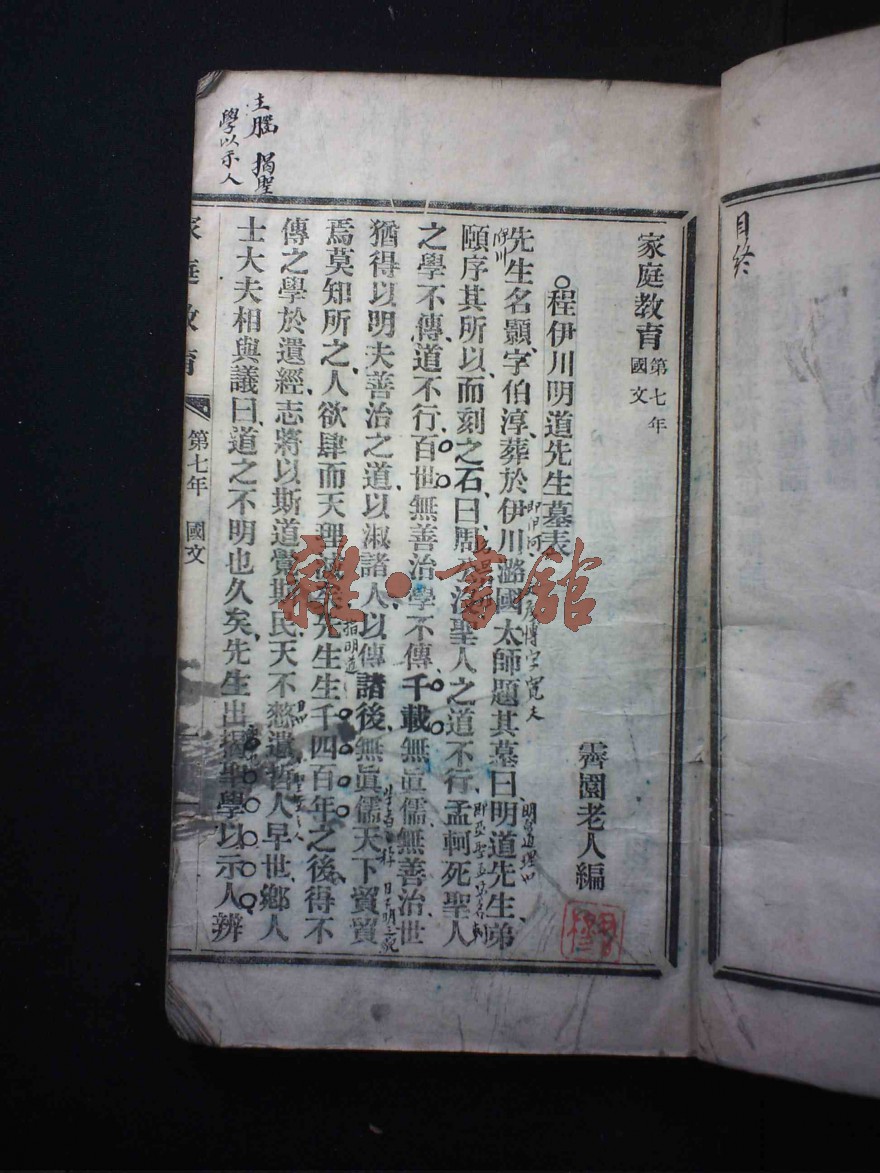 目終
家庭教育 第七年 國文
霽園老人編
程伊川明道先生墓表
先生名顥字伯淳葬於伊川潞國太師題其墓曰明道先生弟
頤序其所以而刻之石曰周公沒聖人之道不行孟軻死聖人
之學不傳道不行百世無善治學不傳千載無眞儒無善治世
猶得以明夫善治之道以淑諸人以傳諸後無眞儒天下貿貿
焉莫知所之人欲肆而天理滅矣先生生千四百年之後得不
傳之學於遺經志將以斯道覺斯民天不憖遺哲人早世鄉人
士大夫相與議曰道之不明也久矣先生出揭聖學以示人辨
家庭教育 第七年 國文
主腦 揭聖
學以示人
指明道
雜·書館